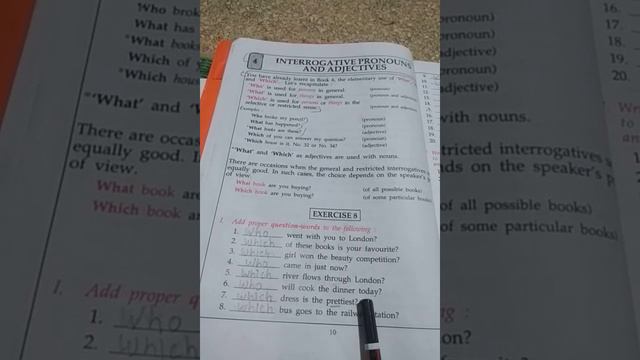 Who brok
What has
"What book
Which of y
"Which hous
"'What' and '
There are occas
equally good. I
of view.
What book are
Which book are
I. Add proper q
1. who
4
INTERROGATIVE PRONOUNS
AND ADJECTIVES
You have already learnt in Book 6, the elementary use of
and 'Which'. Let's recapitulate
'Who' is used for persons in general. (pronoun)
'What' is used for things in general. (pronoun and adjective)
'Which' is used for persons or things in the
selective or restricted sense. (pronoun and adjective)
Who broke my pencil? (pronoun)
What has happened? (pronoun)
"What books are these? (adjective)
Which of you can answer my question? (pronoun)
"Which house is it, No. 32 or No. 34? (adjective)
"'What' and 'Which' as adjectives are used with nouns.
There are occasions when the general and restricted interrogatives
equally good. In such cases, the choice depends on the speaker's p
of view.
What book are you buying? (of all possible books)
Which book are you buying? (of some particular books)
EXERCISE 8
I. Add proper question-words to the following :
1. who went with you to London?
2. which of these books is your favourite?
3. which girl won the beauty competition?
4. who came in just now?
5. which river flows through London?
6. who will cook the dinner today?
7. which dress is the prettiest?
8. which bus goes to the railw tation?
10
(pronoun)
(pronoun)
(adjective)
(pronoun)
(adjective)
16.
17.
18.
19.
20.
with nouns.
restricted interrogatives
ds on the speaker's p
of all possible books)
of some particular books)